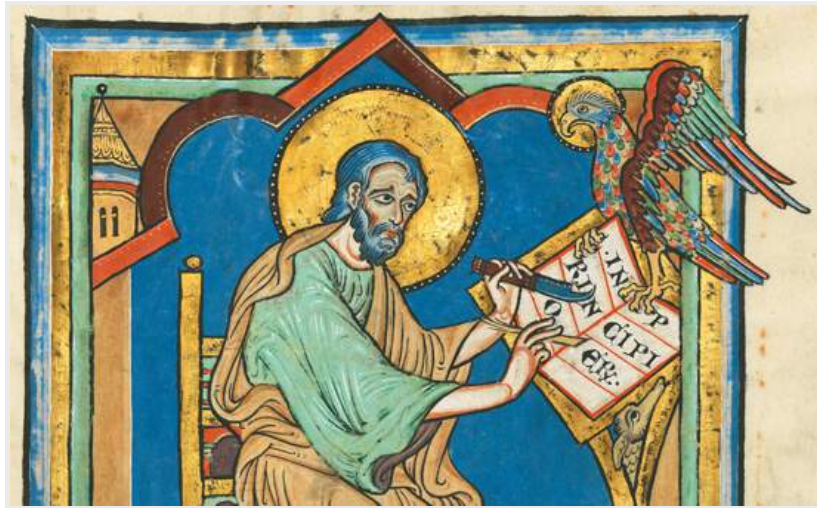 ·IN P
RIN CIPI
O ERT·